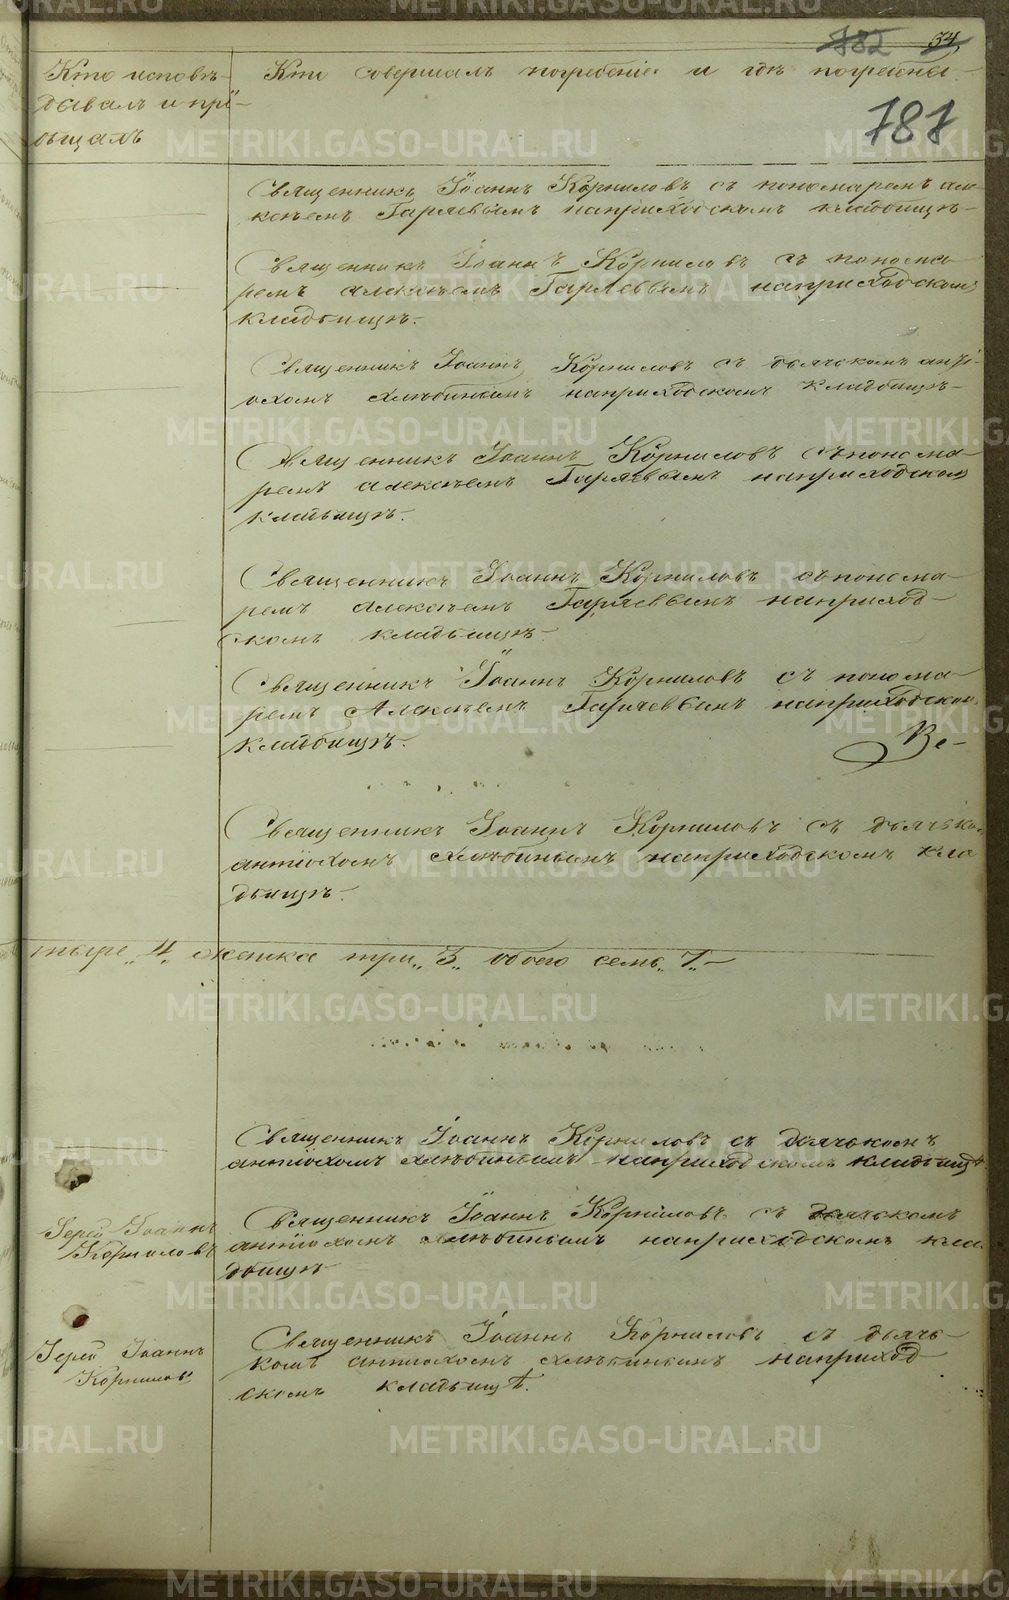 782 54
Кто исповѣ- Кто совершалъ погребеніе и гдѣ погребены.
довалъ и прі-
общалъ
787
Священникъ Іоаннъ Корниловъ съ пономаремъ Але-
ксѣемъ Гаряевымъ на приходскомъ кладбищѣ-
Священникъ Іоаннъ Корниловъ съ понома
ремъ алексѣемъ Гаряевымъ на приходскомъ
кладбищѣ.
Священникъ Іоаннъ Корниловъ съ дьячкомъ анті-
охомъ Хлѣбинымъ на приходскомъ кладбищѣ-
Священникъ Іоаннъ Корниловъ съ понома-
ремъ алексѣемъ Гаряевымъ на приходском
кладбищѣ.
Священникъ Іоаннъ Корниловъ съ понома-
ремъ алексѣемъ Гаряевымъ на приход-
скомъ кладбищѣ-
Священникъ Іоаннъ Корниловъ съ понома-
ремъ Алексѣемъ Гаряевымъ на приходском
кладбищѣ.
Ве-
Священникъ Іоаннъ Корниловъ съ дьячко
антіохомъ Хлѣбинымъ на приходскомъ кла
дбищѣ.
тыре „4„ женска три „3„ обоего семь „7„-
Священникъ Іоаннъ Корниловъ съ дьячкомъ
антіохомъ Хлѣбинымъ на приходскомъ кладбищѣ
Іерей Іоаннъ Священникъ Іоаннъ Корниловъ съ дьячкомъ
Корниловъ антіохомъ Хлѣбинымъ на приходскомъ кла
дбищѣ
Іерей Іоаннъ Священникъ Іоаннъ Корниловъ съ дьяч-
Корниловъ комъ антіохомъ Хлѣбинымъ на приход
скомъ кладбищѣ.
METRIKI.GASO-URAL.RU